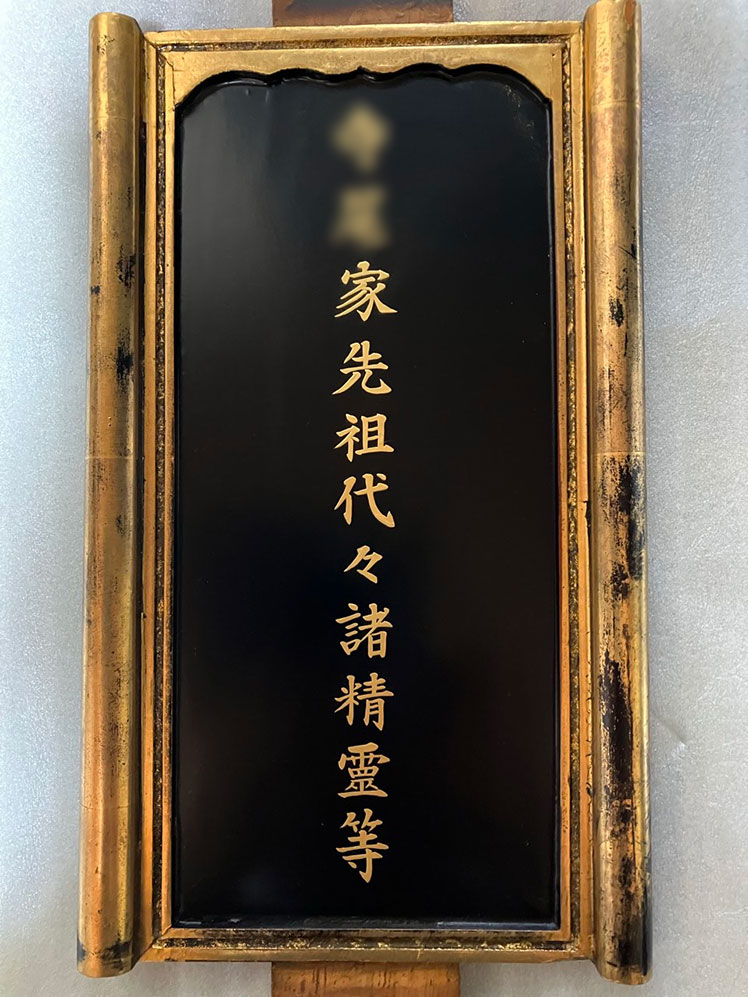 家先祖代々諸精霊等